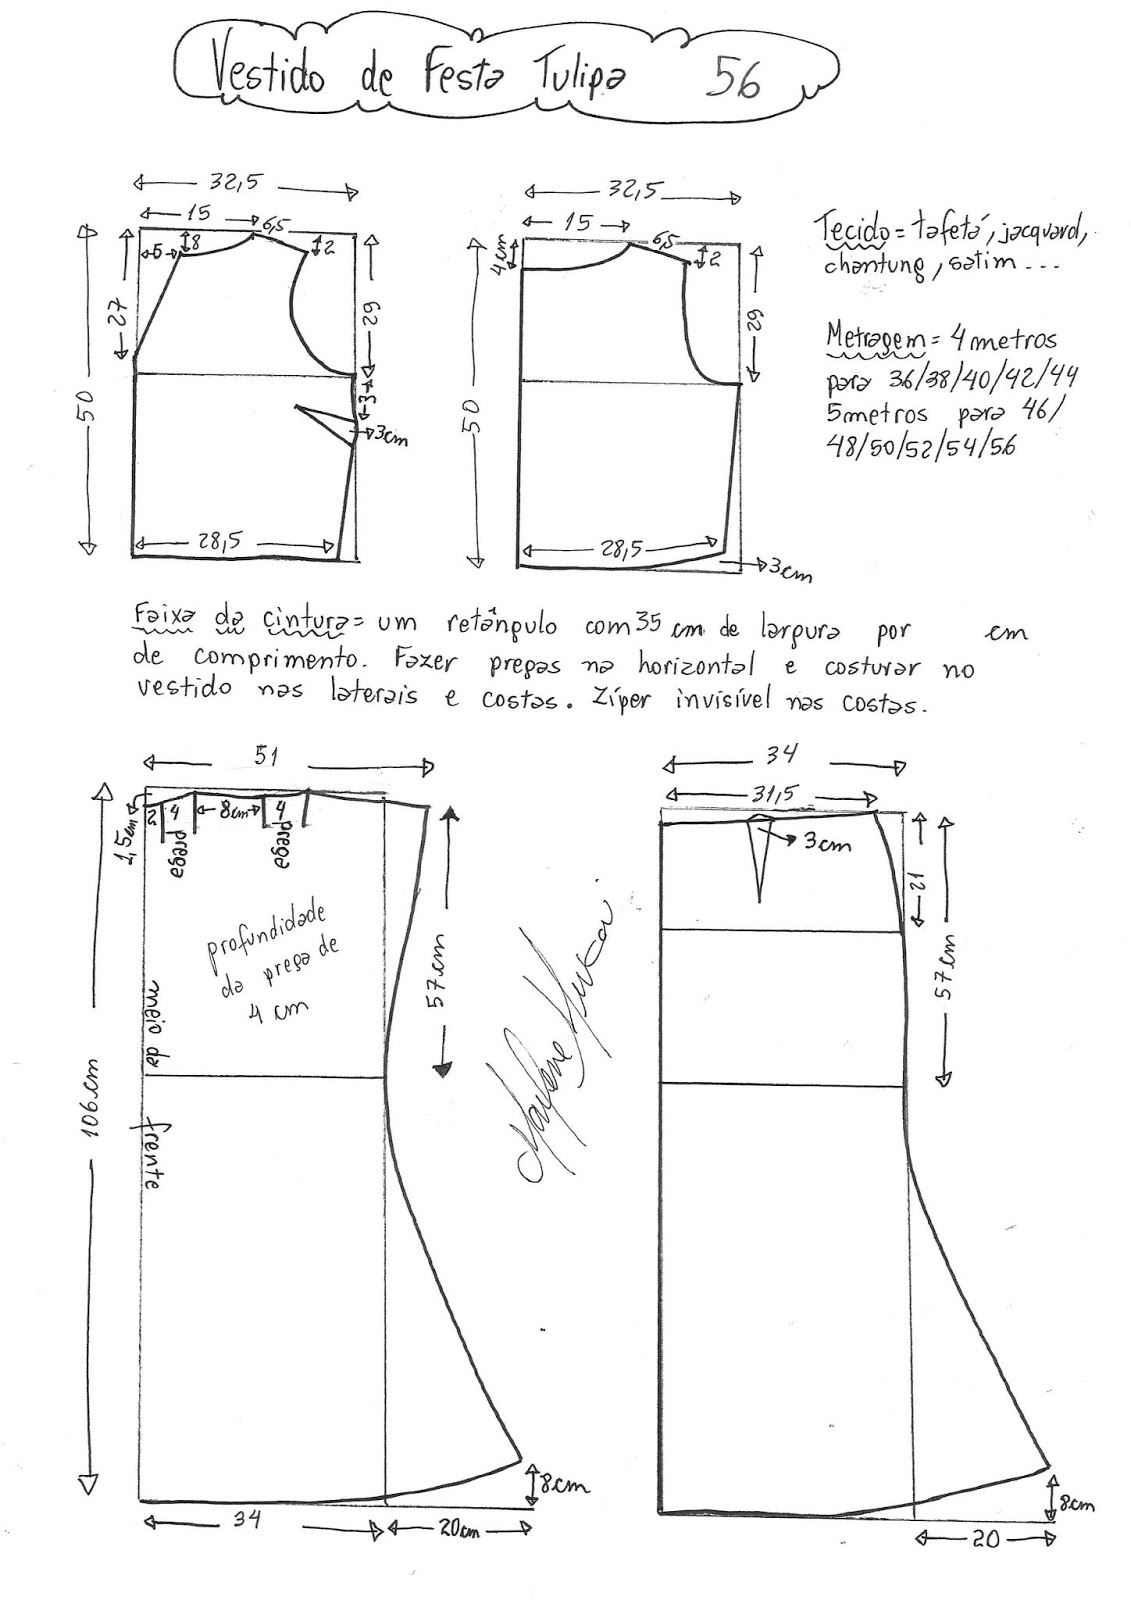 Vestido de Festa Tulipa 56
32,5
15
6,5
5
8
2
27
29
50
3
3cm
28,5
32,5
15
6,5
4cm
2
29
50
28,5
3cm
Tecido = tafetá, jacquard,
chantung, satim...
Metragem = 4 metros
para 36/38/40/42/44
5 metros para 46/
48/50/52/54/56
Faixa da cintura = um retângulo com 35 cm de largura por em
de comprimento. Fazer pregas na horizontal e costurar no
vestido nas laterais e costas. Zíper invisível nas costas.
51
1,5cm
2
4
prega
8cm
4
prega
profundidade
da prega de
4 cm
57cm
meio da
frente
106cm
34
20cm
8cm
Marlene Mukai
34
31,5
3cm
21
57cm
8cm
20